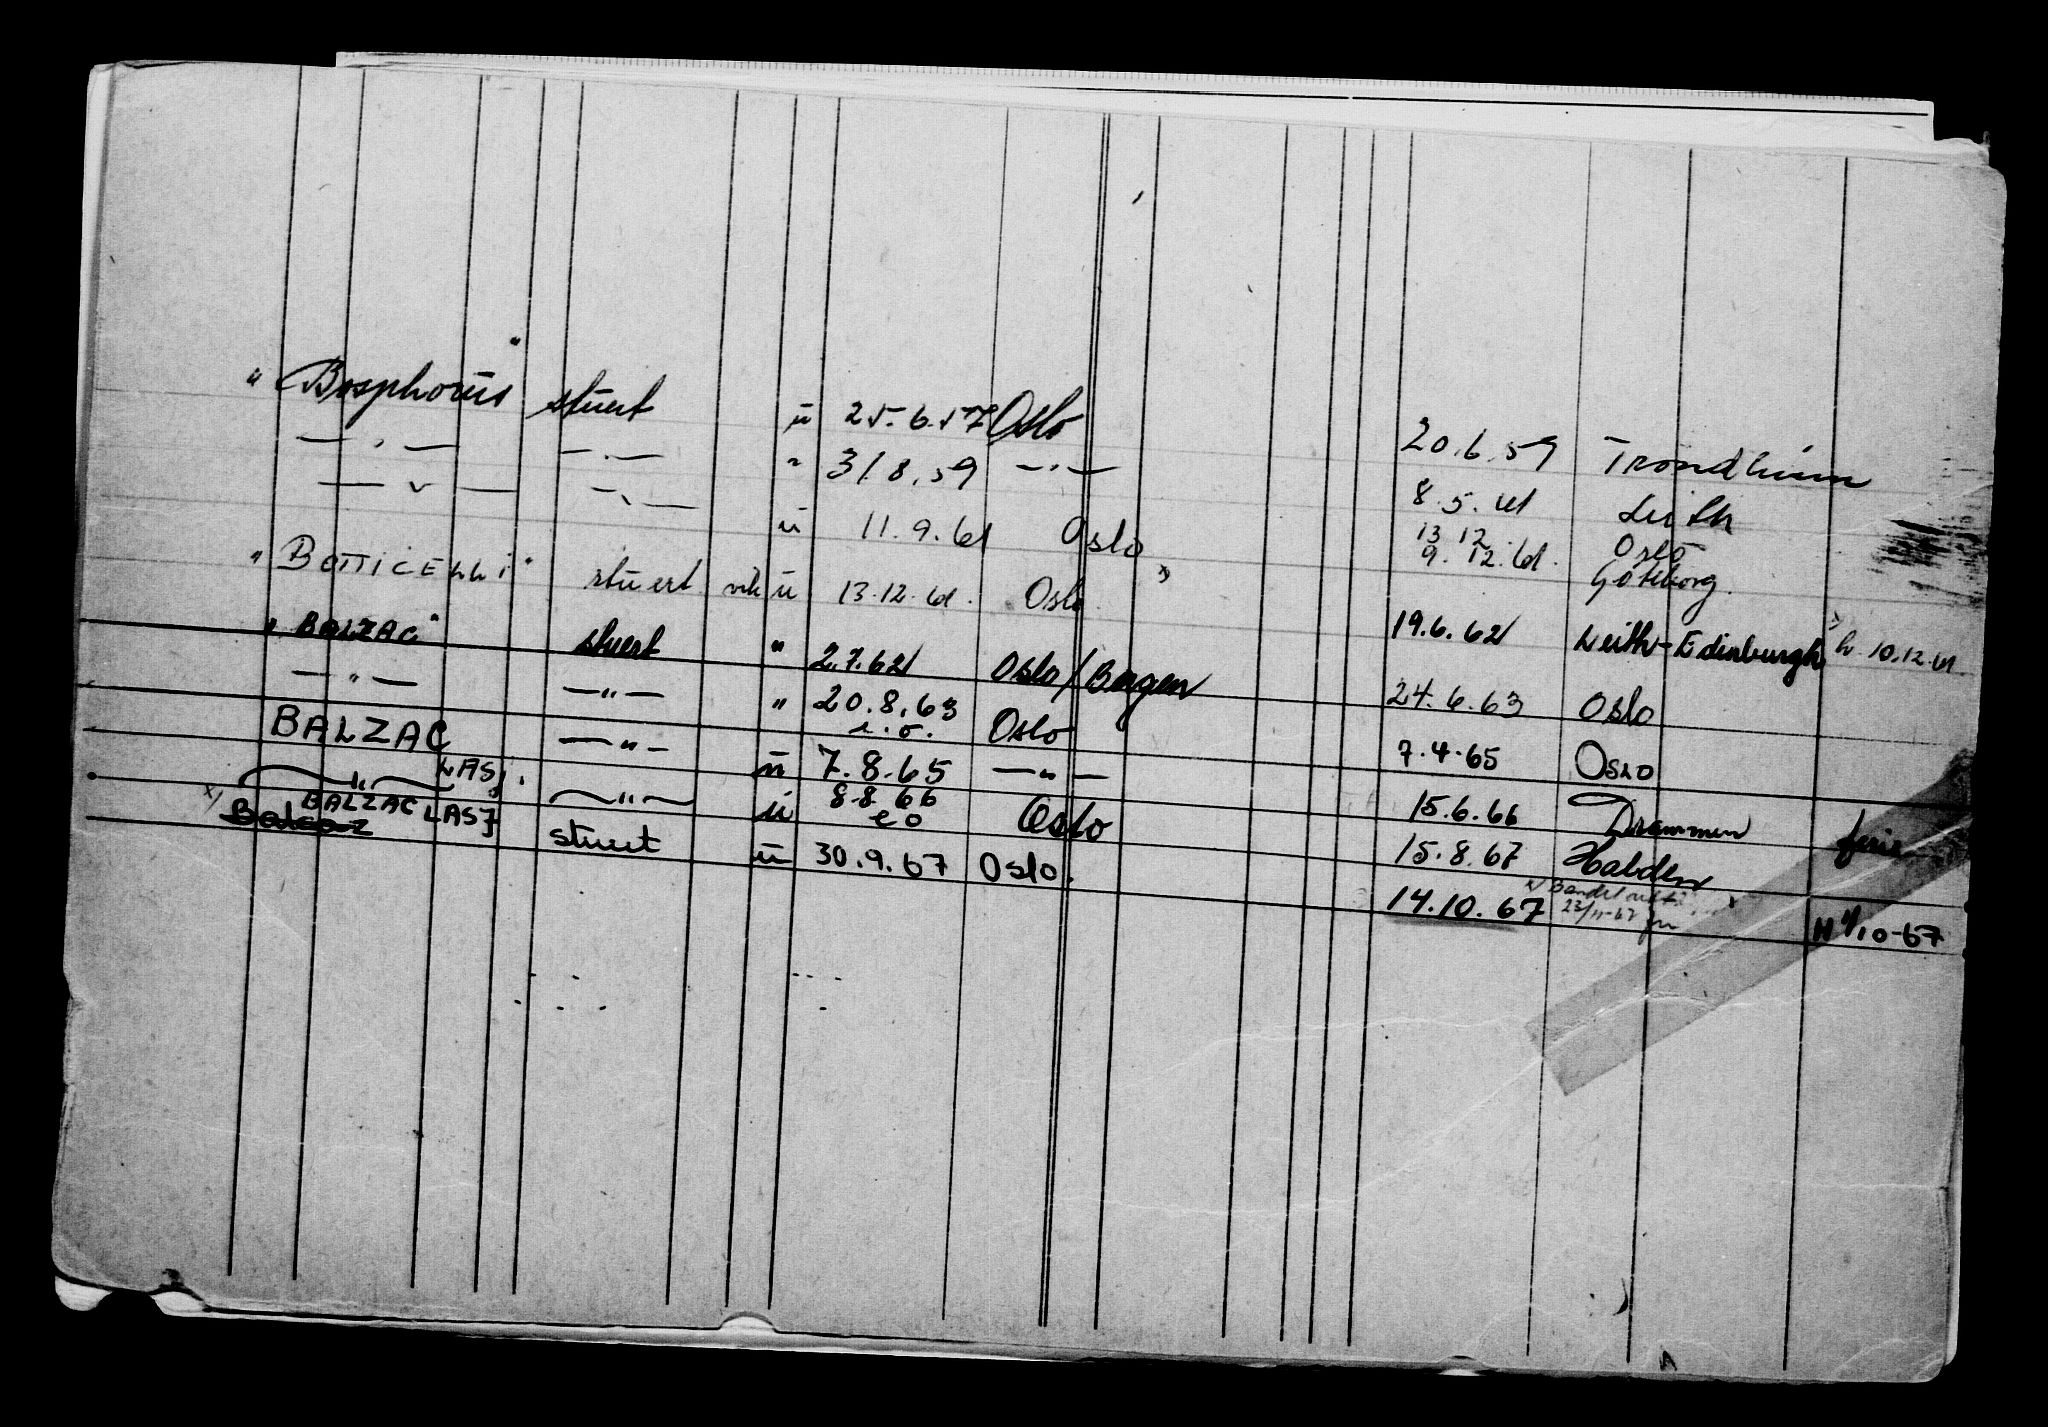 "Bosphorus" stuert u 25.6.57 Oslo 20.6.59 Trondheim
— " — — " — " 31.8.59 — " — 8.5.61 Leith
— " — — " — u 11.9.61 Oslo 13.12. Oslo
9.12.61. Göteborg.
"BOTTICELLI" stuert vik u 13.12.61. Oslo. x) 19.6.62 Leith-Edinburgh x) h. 10.12.61
"BALZAC" stuert " 2.7.62 Oslo/Bergen 24.6.63 Oslo
— " — — " — " 20.8.63 Oslo 7.4.65 Oslo
e.o.
BALZAC LASJ. — " — u 7.8.65 — " — 15.6.66 Drammen ferie
— " — — " — u 8.8.66 Oslo 15.8.67 Halden
e o
x) Balcaz BALZAC LASJ stuert u 30.9.67 Oslo. 14.10.67 H 4/10-67
23/11-67